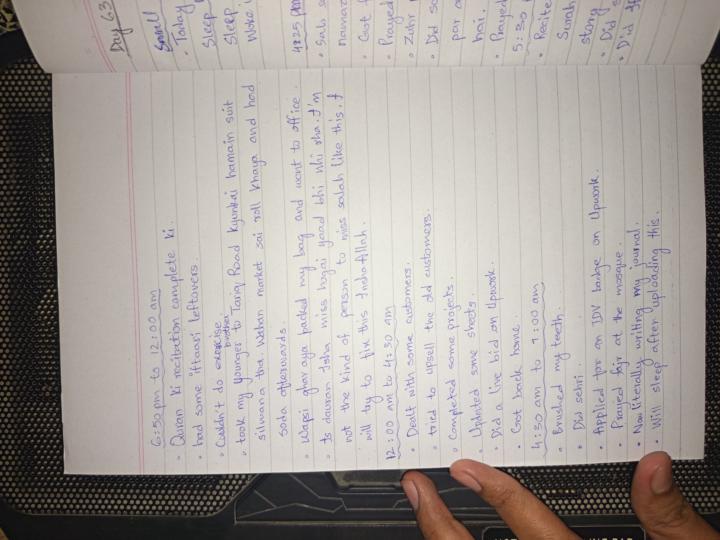 6:50 pm to 12:00 am
• Quran ki recitation complete ki.
• had some iftaari leftovers.
• Culdn't do exercise.
• took my younger brother to Tariq Road kyunkai hamain suit
silwana tha. Wahan market sai roll khaya and had
soda afterwards.
• Wapsi ghar aya packed my bag and went to office.
• Is dauran Isha miss hogai yaad bhi nhi rha. I'm
not the kind of person to miss salah like this. I
will try to fix this InshaAllah.
12:00 AM to 4:30 AM
• Dealt with some customers.
• tried to upsell the old customers.
• Completed some projects.
• Updated some sheets.
• Did a live bid on Upwork.
• Got back home.
4:30 am to 7:00 am
• Brushed my teeth.
• Did sehri.
• Applied for an IDV badge on Upwork.
• Prayed fajr at the mosque.
• Now literally writing my journal.
• Will sleep after uploading this.
Day 63
Small
• Today
Sleep
Sleep
Woke
4:25 pm
• Sab
namaz
• Got
• Prayed
• Zuhr
• Did so
par a
hai.
• Prayed
5:30
• Recite
Surah
story
• Did s
• Did